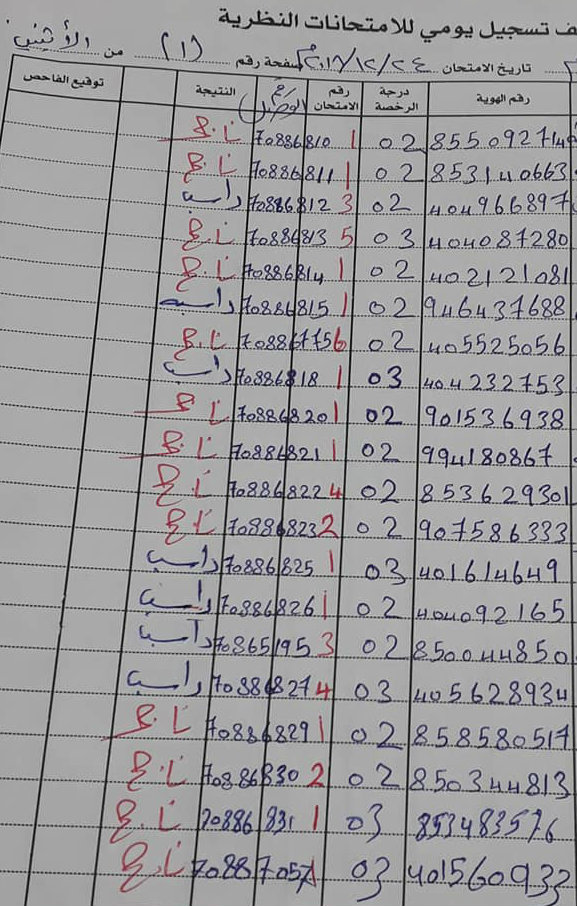 ف تسجيل يومي للامتحانات النظرية
تاريخ الامتحان ٢٠١٧/١٢/٢٤ صفحة رقم (١) من الأثنين
رقم الهوية درجة الرخصة رقم الامتحان رقم الوصل النتيجة توقيع الفاحص
855092714 02 1 70886810 ناجح
853140663 02 1 70886811 ناجح
404966897 02 3 70886812 راسب
404087280 03 5 70886813 ناجح
402121081 02 1 70886814 ناجح
946437688 02 1 70886815 راسب
405525056 02 6 70886775 ناجح
404232753 03 1 70886818 راسب
901536938 02 1 70886820 ناجح
994180867 02 1 70886821 ناجح
853629301 02 4 70886822 ناجح
907586333 02 2 70886823 ناجح
401614649 03 1 70886825 راسب
404092165 02 1 70886826 راسب
850044850 02 3 70865195 راسب
405628934 03 4 70886827 راسب
858580517 02 1 70886829 ناجح
850344813 02 2 70886830 ناجح
853483576 03 1 70886831 ناجح
401560933 03 1 70887057 ناجح